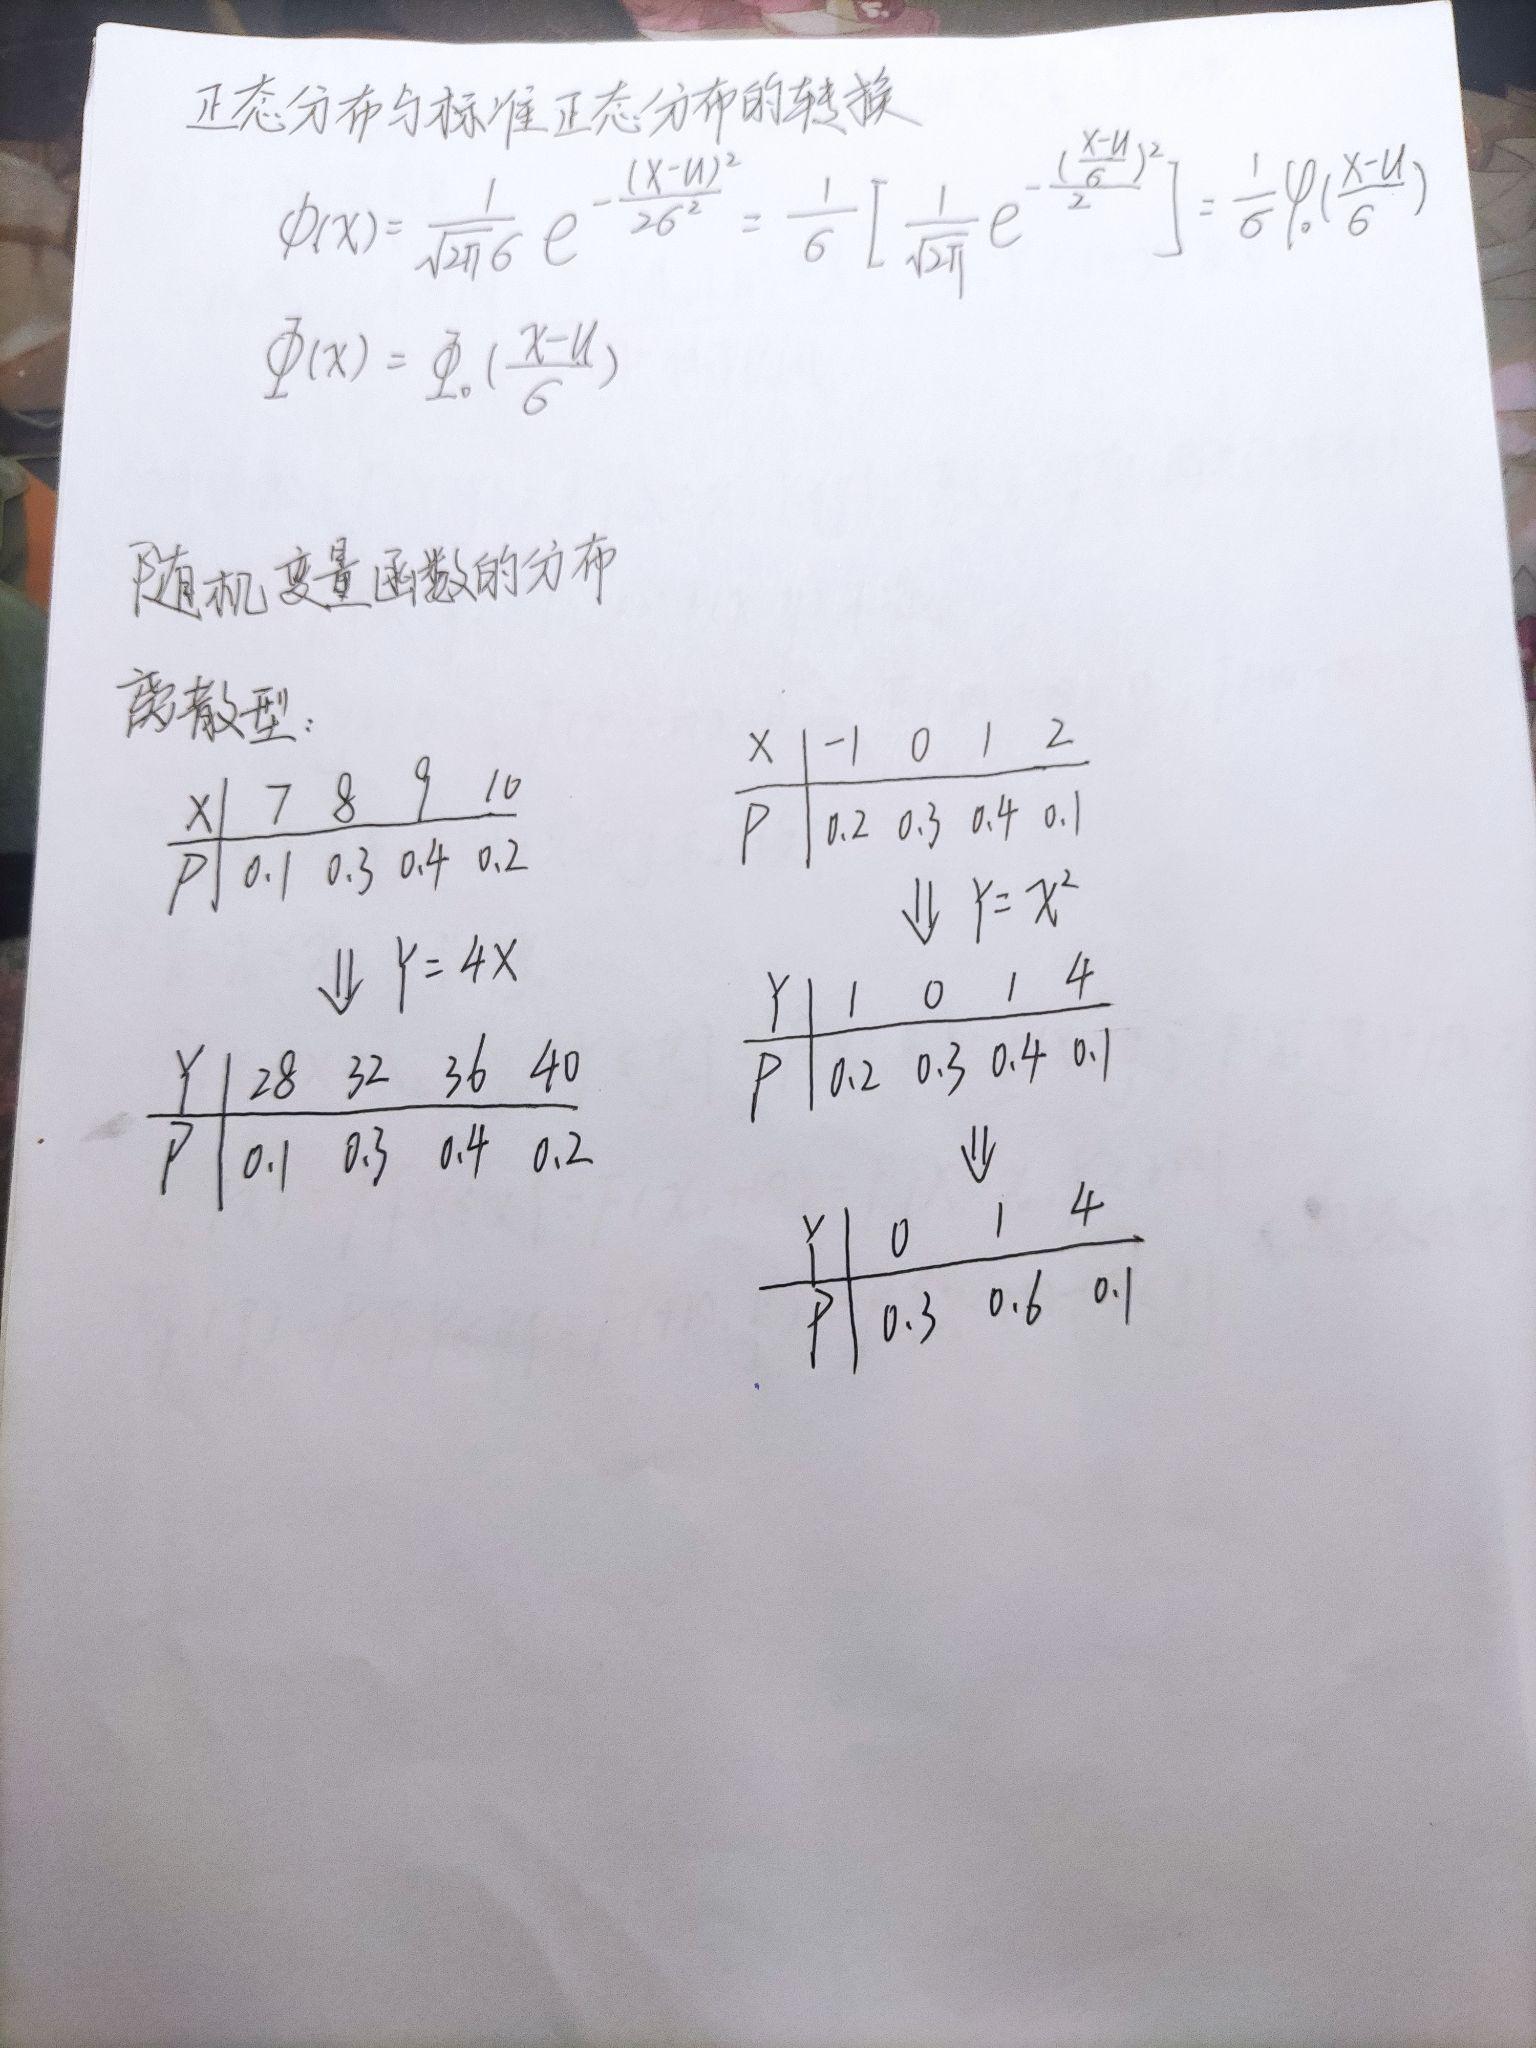 正态分布与标准正态分布的转换
φ(x) = 1/(√2π σ) e^(-(x-μ)²/(2σ²)) = 1/σ [1/√2π e^(-((x-μ)/σ)²/2)] = 1/σ φ₀((x-μ)/σ)
Φ(x) = Φ₀((x-μ)/σ)
随机变量函数的分布
离散型:
X | 7 8 9 10
P | 0.1 0.3 0.4 0.2
⇓ Y=4X
Y | 28 32 36 40
P | 0.1 0.3 0.4 0.2
X | -1 0 1 2
P | 0.2 0.3 0.4 0.1
⇓ Y=x²
Y | 1 0 1 4
P | 0.2 0.3 0.4 0.1
⇓
Y | 0 1 4
P | 0.3 0.6 0.1